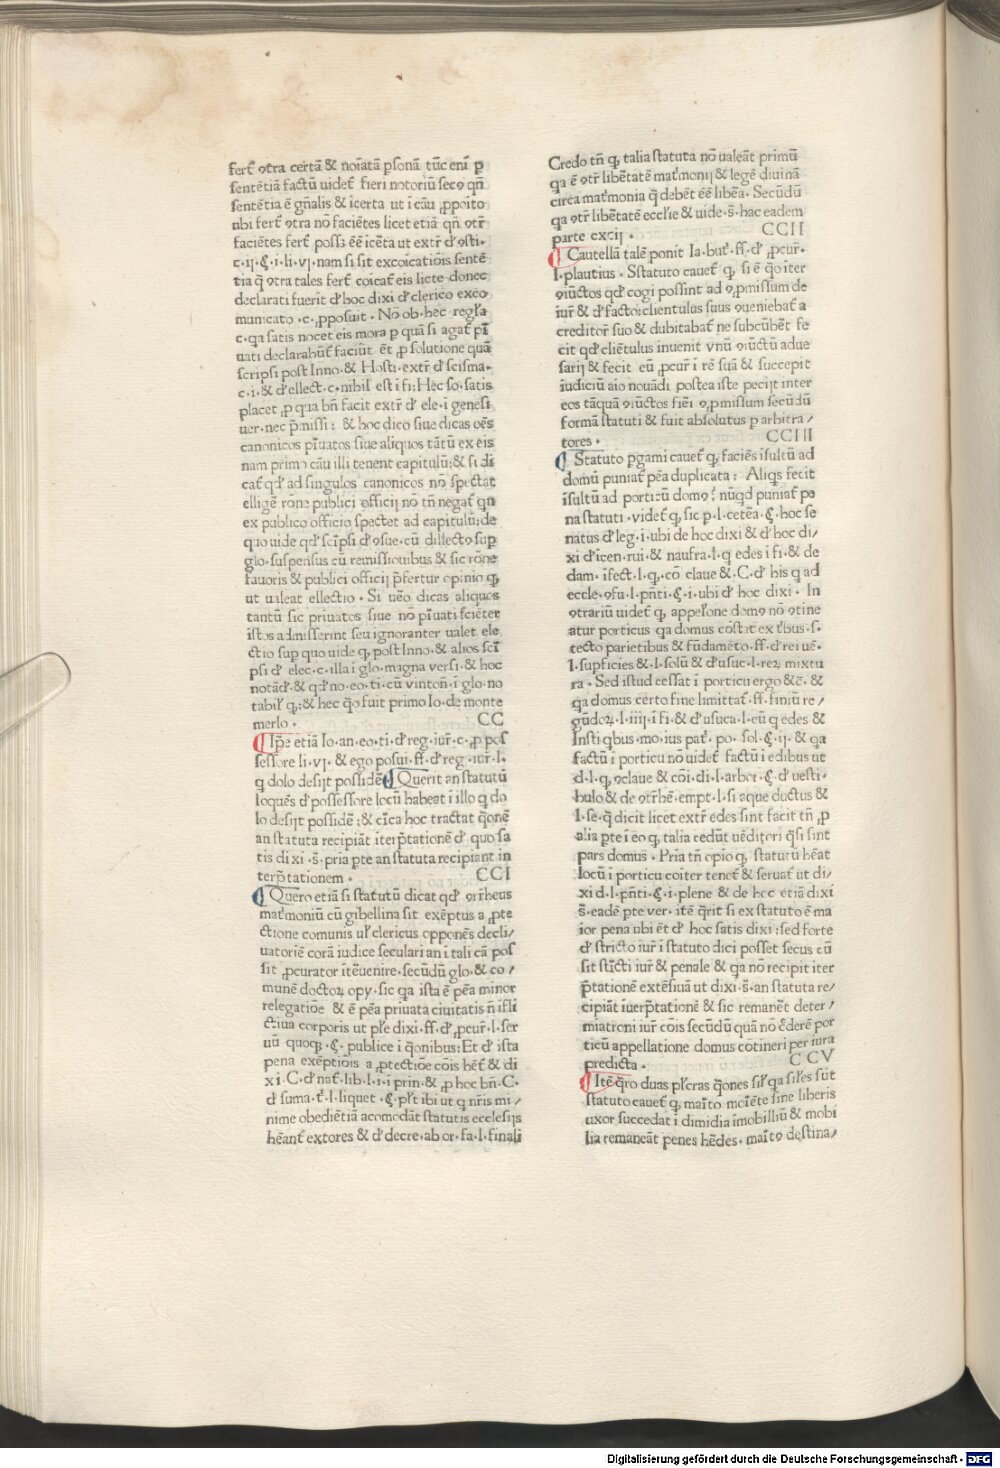 fert᷒ ↄtra certā & noīatā ꝑsonā tūc eni̅ ꝑ
sentētiā factū uidet᷒ fieri notoriū secꝰ qn̄
sentētia ē gn̄alis & īcerta ut ī cāu ꝓpoito
ubi fert᷒ ↄtra nō faciētes licet etiā qn̄ ↄtr̄
faciētes fert᷒ possi ēē īcēta ut extr̄ đ ↄsti·
c·ij·§·i·li·vj·nam si sit excoīcatiōis sentē
tia q̄ ↄtra tales fert᷒ coicat᷒ eis licte donec
declarati fuerīt đ hoc dixi đ clerico exco
municato ·c·ꝓposuit· Nō ob·hec regl̄a
c·qa satis nocet eis mora ꝑ quā si agat᷒ pī
uati declarabūt᷒ faciūt ēt ꝓ solutione quā
scripsi post Inno·& Hosti·extr̄ đ scisma·
c·i·& đ ellect·c·nihil est ī fi; Hec so·satis
placet ꝓ qua bn̄ facit extr̄ đ ele·i genesi
uer·nec p̄·nissi: & hoc dico siue dicas oēs
canonicos pīuatos siue aliquos tātū ex eis
nam primo cāu illi tenent capitulū;& si di
cat᷒ qđ ad singulos canonicos nō spectat
elligē rōne publici officij nō tn̄ negat᷒ qn
ex publico officio spectet ad capitulū;de
quo uide qđ scīpsi đ ↄsue·cū dillectꝰ sup
glo·suspensus cū remissionibus & sic rōne
fauoris & publici officij p̄fertur opinio ꝙ
ut ualeat ellectio· Si uēo dicas aliquos
tantū sic priuatos siue nō pīuati fciēter
istos admisserint seu ignoranter ualet ele
ctio sup quo uide ꝙ post Inno·& alios scī
psi đ elec·c·illa ī glo·magna versi·& hoc
notāđ·& qđ no·eo·ti·cū vinton·i glo·no
tabil᷒ ꝙ:& hec qo fuit primo Io·de monte
merlo· CC
Ip̄e etiā Io·an·eo·ti·đ reg·iur̄·c·ꝓ pos
sessore li·vj·& ego posui·ff·đ reg·iur̄·l·
q dolo desijt possidē Querit an statutū
loquēs đ possessore locū habeat ī illo q do
lo desijt possidē:& cīca hoc tractat q̄onē
an statuta recipiāt īterp̄tationē đ quo sa
tis dixi·s̄·pria pte an statuta recipiant in
terp̄tationem· CCI
Quero etiā si statutū dicat qđ ↄr̄heus
mat᷒moniū cū gibellina sit exēptus a ꝓte
ctione comunis ul᷒ clericus opponēs decli/
uatoriē corā iudice seculari an ī tali cā pos
sit ꝓcurator ītēuenire·secūdū glo·& co/
munē doctoꝝ opy·sic qa ista ē pēa minor
relegatiōe & ē pēa priuata ciuitatis n̄ ifli
ctiua corporis ut ple dixi·ff·đ ꝓcur̄·l·ser
uū quoqꝫ·§·publice ī q̄onibus:Et đ ista
pena exēptiōis a ꝓtectiōe cōis hēt᷒ & di
xi·C·đ nat᷒·lib·l·i·ī prin·& ꝓ hoc bn̄·C·
đ suma·t᷒·l·liquet·§·pl᷒t ibi ut q nr̄is mi/
nime obediētiā acomodāt statutis ecclesijs
hēant᷒ extores & đ decre·ab or·fa·l·finali
Credo tn̄ ꝙ talia statuta nō ualeāt primū
qa ē ↄtr̄ libētatē mat᷒monij & legē diuinā
circa mat᷒monia q̄ debēt ēē libēa· Secūdū
qa ↄtr̄ libētatē ecclīe & uide·s̄·hac eadem
parte cxcij· CCII
Cautellā talē ponit Ia·but᷒·ff·đ ꝓcur̄·
l·plautius· Sstatuto cauet᷒ ꝙ si ē q̄o īter
ↄiūctos qđ cogi possint ad ↄꝓmissum de
iur̄ & đ facto:clientulus suus ↄueniebat᷒ a
creditor̄ suo & dubitabat᷒ ne subcūbēt fe
cit qđ cliētulus inuenit vnū ↄiūctū adue
sarij & fecit eū ꝓcur̄ ī rē suā & succepit
iudiciū aio nouādi postea iste pecijt inter
eos tāq̄uā ↄiūctos fiēi ↄꝓmissum secūdū
formā statuti & fuit absolutus p arbitra/
tores· CCIII
Statuto pgami cauet᷒ ꝙ faciēs īsultū ad
domū puniat᷒ pēa duplicata: Aliqs fecit
īsultū ad porticū domꝰ? nūqđ puniat᷒ pe
na statuti·videt᷒ ꝙ sic p·l·cetēa·§·hoc se
natus đ leg·i·ubi de hoc dixi & đ hoc di/
xi đ īcen·rui·& naufra·l·q edes ī fi·& de
dam·īfect·l·ꝙ cō claue &·C·đ his q ad
eccle·ↄfu·l·pn̄ti·§·i·ubi đ hoc dixi· In
ↄtrariū uidet᷒ ꝙ appel᷒one domꝰ nō ↄtine
atur porticus qa domus cōstat ex t᷒bus·s·
tecto parietibus & fūdamēto·ff·đ rei uē·
l·supficies &·l·solū & đ usuc·l·reꝝ mixtu
ra· Sed istud cessat ī porticu ergo &c̄· &
qa domus certo fine limittat᷒·ff·finiū re/
gūdoꝝ·l·iiij·ī fi·& đ usuca·l·eū q edes &
Insti qbus·mo·ius pat᷒·po·sol·§·ij·& qa
factū ī porticu nō uidet᷒ factū ī edibus ut
đ·l·ꝙ ↄclaue & cōi·di·l·arbor·§·đ uesti·
bulo & de ↄtr̄hē·empt·l·si aque ductus &
l·se·q̄ dicit licet extr̄ edes sint facit tn̄ ꝓ
alia pte ī eo ꝙ talia cedūt uēditori q̄si sint
pars domus· Pria tn̄ opīo ꝙ statutū hēat
locū ī porticu coiter tenet᷒ & seruat᷒ ut di/
xi đ·l·pn̄ti·§·i·plene & de hoc etiā dixi
s̄·eadē pte ver·itē q̄rit si ex statuto ē ma
ior pena ubi ēt đ hoc satis dixi:sed forte
đ stricto iur̄ ī statuto dici posset secus cū
sit stūcti iur̄ & penale & qa nō recipit iter
p̄tationē extēsiuā ut dixi·s̄·an statuta re/
cipiāt iuerp̄tationē & sic remanēt deter/
miationi iur̄ cōis secūdū quā nō cēderē por
ticū appellatione domus cōtineri per iura
predicta· CCV
Itē q̄ro duas plīcras q̄ones sil᷒ qa sil᷒es sūt
statuto cauet᷒ ꝙ maīto moīēte sine liberis
uxor succedat ī dimidia īmobilliū & mobi
lia remaneāt penes hēdes·maīti destina/
Digitalisierung gefördert durch die Deutsche Forschungsgemeinschaft - DFG